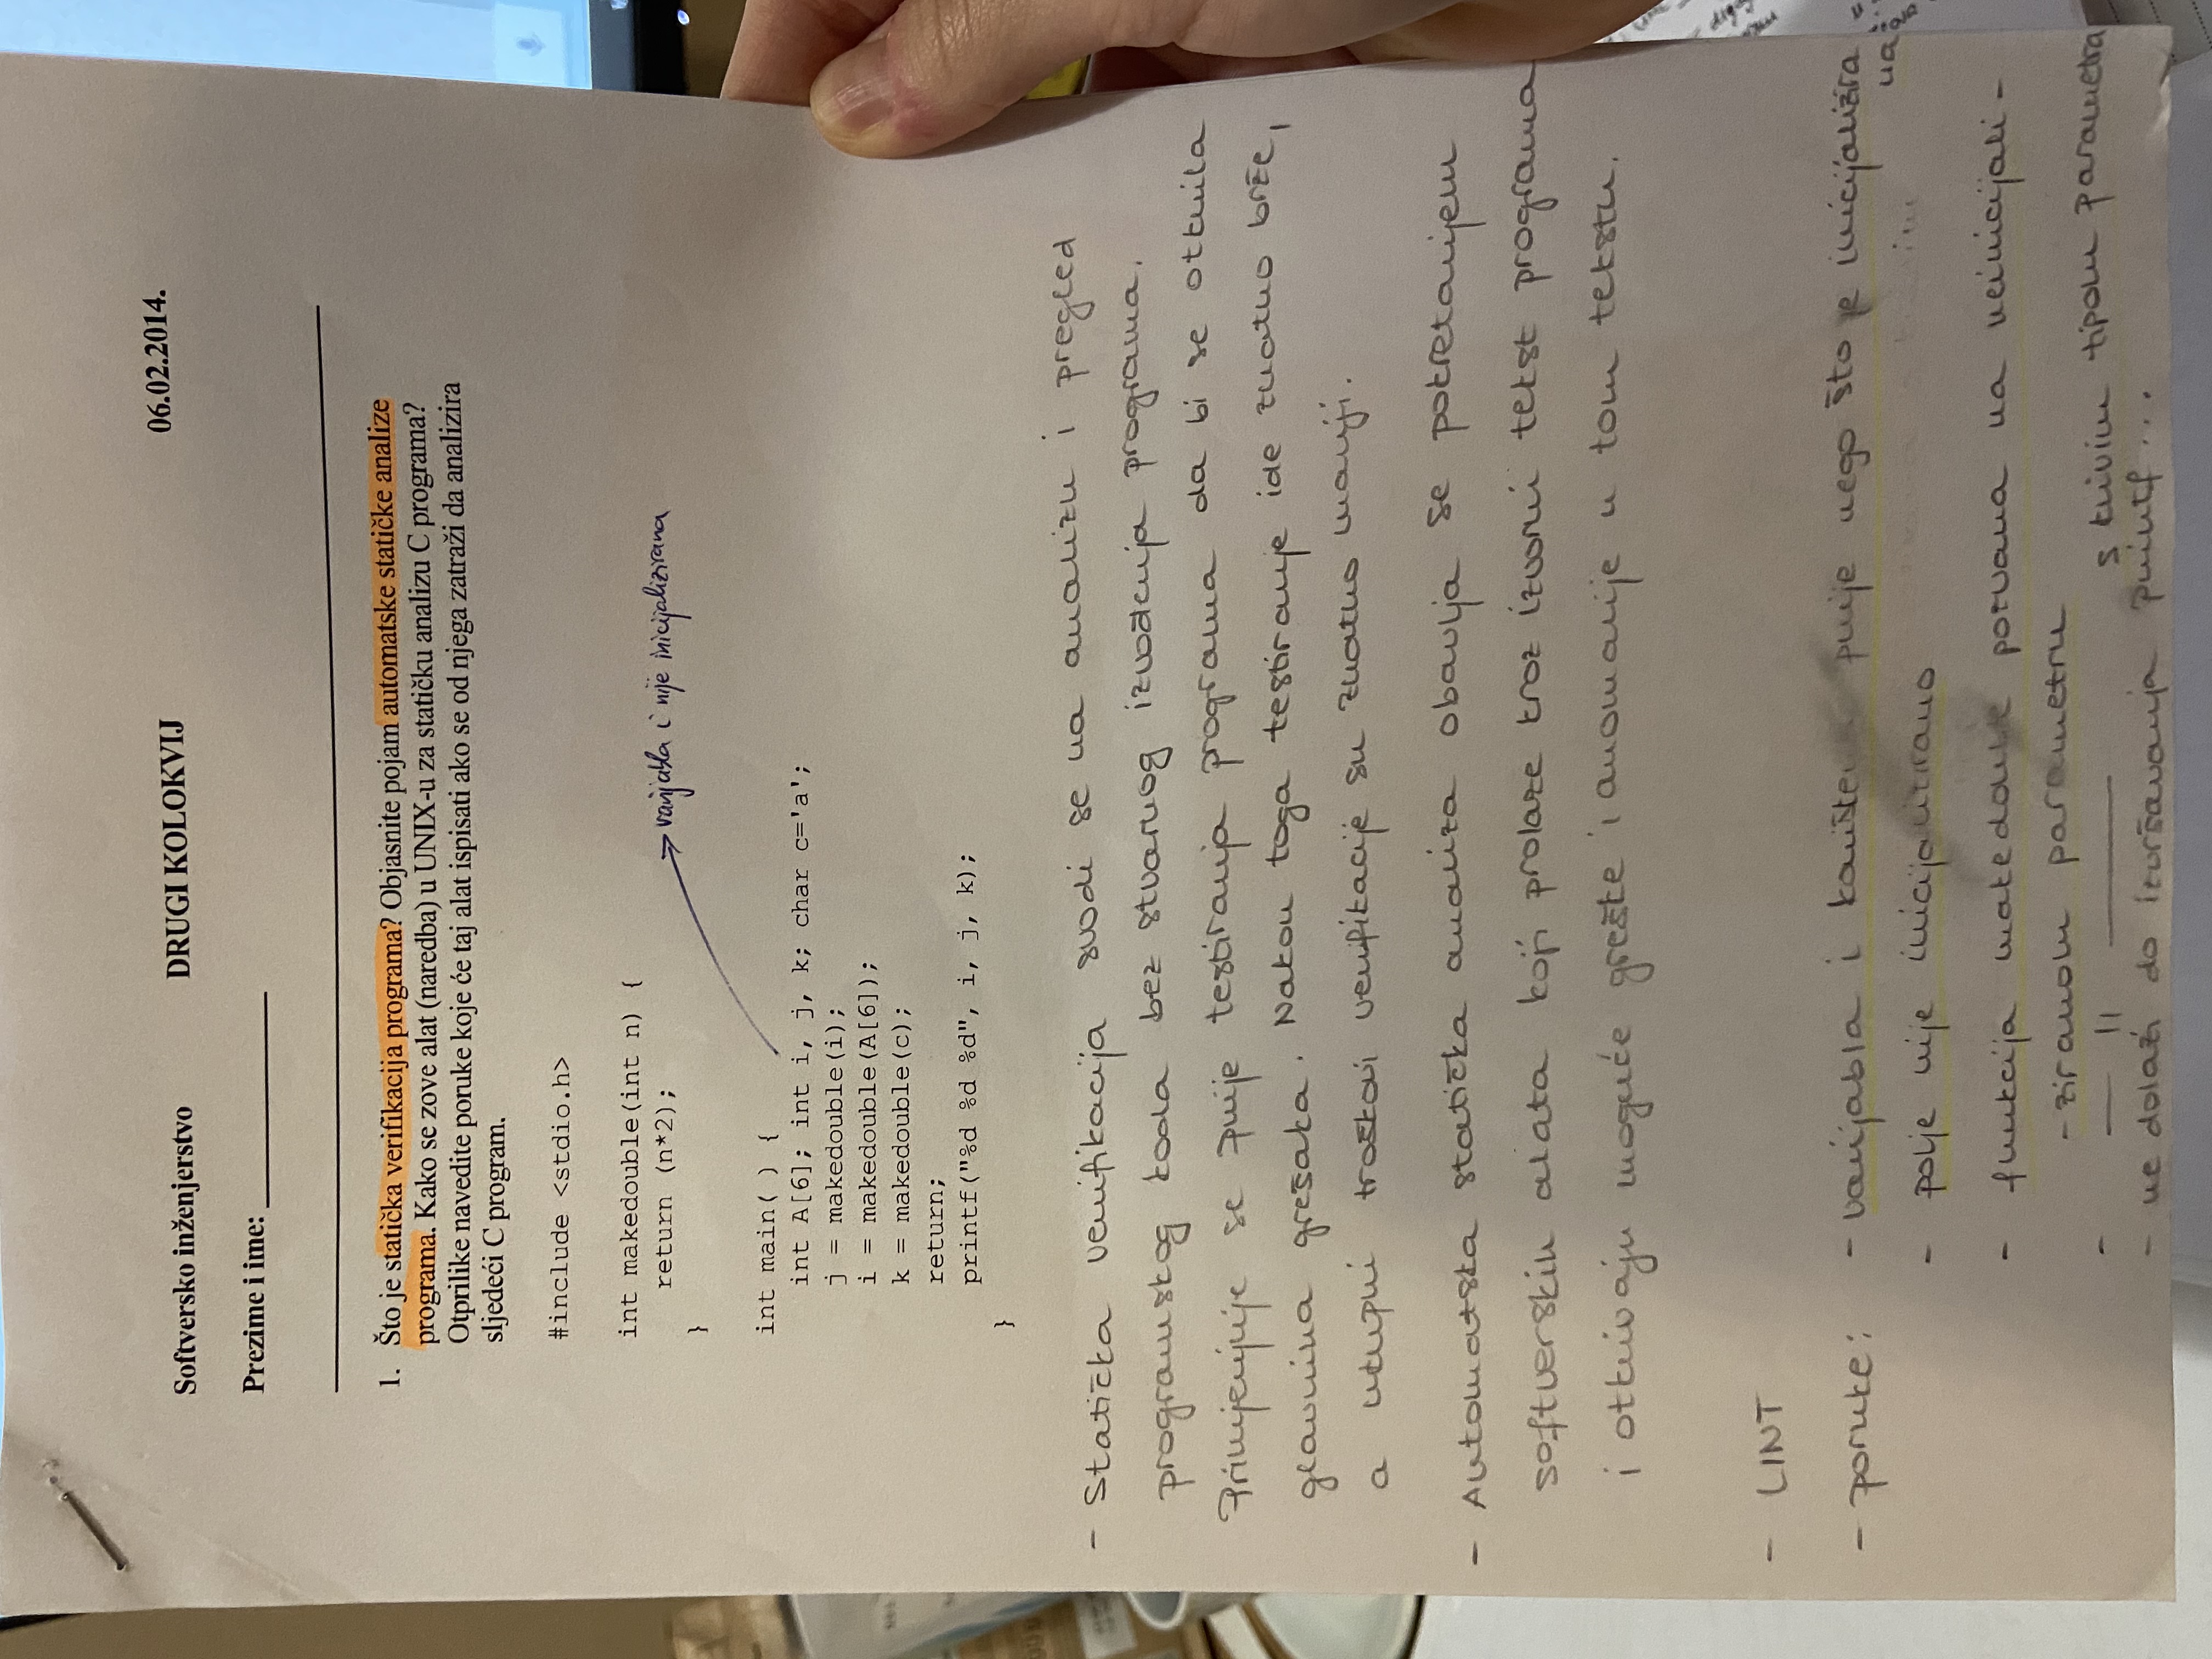 Softversko inženjerstvo DRUGI KOLOKVIJ 06.02.2014.
Prezime i ime: ____________
1. Što je statička verifikacija programa? Objasnite pojam automatske statičke analize
programa. Kako se zove alat (naredba) u UNIX-u za statičku analizu C programa?
Otprilike navedite poruke koje će taj alat ispisati ako se od njega zatraži da analizira
sljedeći C program.
#include <stdio.h>
int makedouble(int n) {
return (n*2);
}
varijabla i nije inicijalizirana
int main( ) {
int A[6]; int i, j, k; char c='a';
j = makedouble(i);
i = makedouble(A[6]);
k = makedouble(c);
return;
printf("%d %d %d", i, j, k);
}
- Statička verifikacija svodi se na analizu i pregled
programskog koda bez stvarnog izvođenja programa.
Primjenjuje se prije testiranja programa da bi se otkrila
glavnina grešaka. Nakon toga testiranje ide znatno brže,
a ukupni troškovi verifikacije su znatno manji.
- Automatska statička analiza obavlja se pokretanjem
softverskih alata koji prolaze kroz izvorni tekst programa
i otkrivaju moguće greške i anomalije u tom tekstu.
- LINT
- poruke: - varijabla i prije nego što je inicijalizira
na
- polje nije inicijalizirano
- funkcija makedouble pozvana na neinicijali-
-ziranom parametru
- — 11 —— s krivim tipom parametra
- ne dolazi do izvršavanja printf...